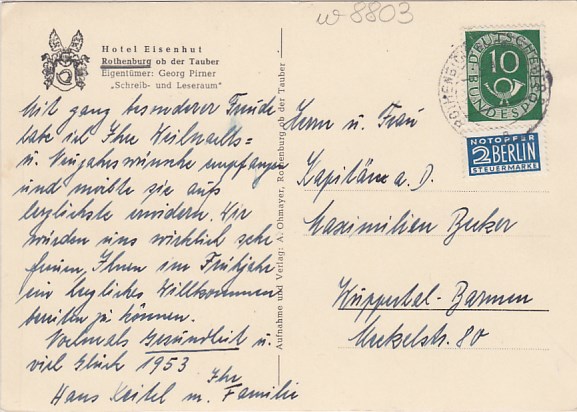 w 8803
Hotel Eisenhut
Rothenburg ob der Tauber
Eigentümer: Georg Pirner
„Schreib- und Leseraum"
Mit ganz besonderer Freude
habe ich Ihre Weihnachts=
u. Neujahrswünsche empfangen
und möchte sie aufs
herzlichste erwidern. Wir
würden uns wirklich sehr
freuen, Ihnen im Frühjahr
ein herzliches Willkommen
bereiten zu können.
Vielmals Gesundheit u.
viel Glück 1953
Ihr
Hans Keitel m. Familie
Aufnahme und Verlag: A. Ohmayer, Rothenburg ob der Tauber
DEUTSCHE BUNDESPOST
10
NOTOPFER
2 BERLIN
STEUERMARKE
Herrn u. Frau
Kapitän a. D.
Maximilian Becker
Wuppertal-Barmen
80